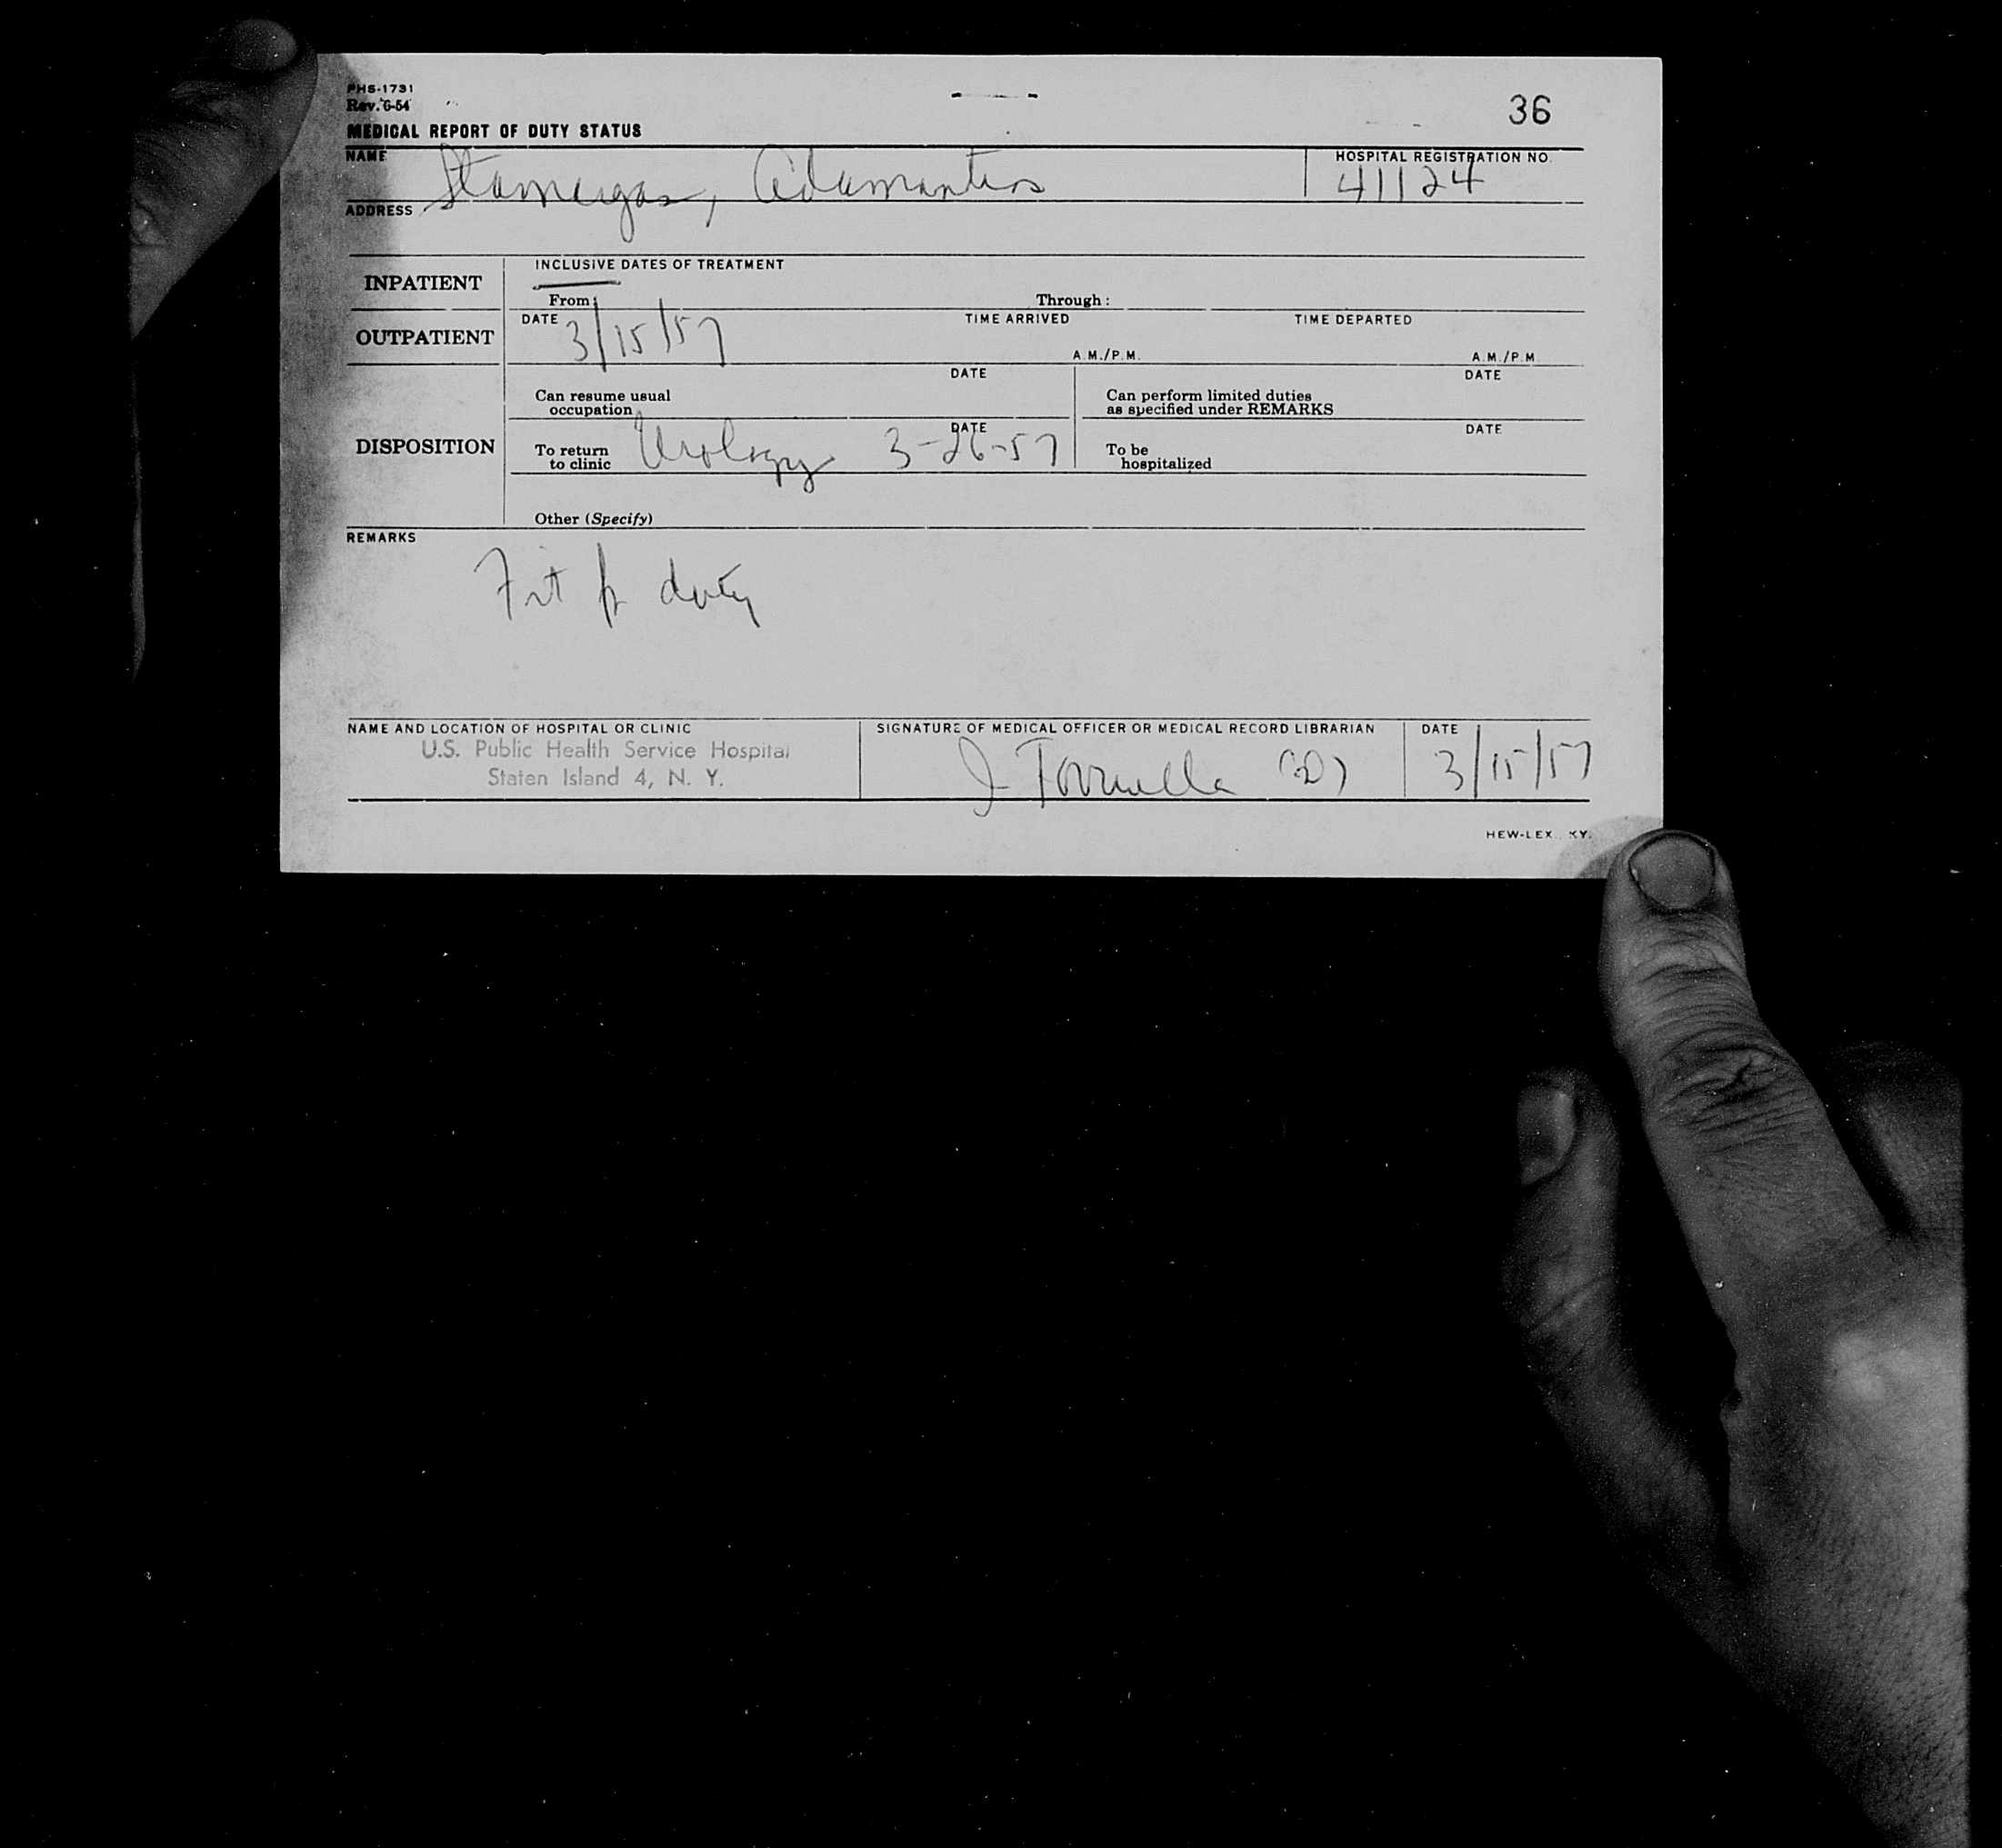 PHS-1731
Rev. 6-54
36
MEDICAL REPORT OF DUTY STATUS
NAME
HOSPITAL REGISTRATION NO.
Adamantios
41124
ADDRESS
INPATIENT
INCLUSIVE DATES OF TREATMENT
From: Through:
OUTPATIENT
DATE TIME ARRIVED TIME DEPARTED
3/15/57
A.M./P.M. A.M./P.M.
DISPOSITION
DATE DATE
Can resume usual occupation
Can perform limited duties as specified under REMARKS
DATE DATE
To return to clinic Urology 3-26-57
To be hospitalized
Other (Specify)
REMARKS
Fit for duty
NAME AND LOCATION OF HOSPITAL OR CLINIC
SIGNATURE OF MEDICAL OFFICER OR MEDICAL RECORD LIBRARIAN
DATE
U.S. Public Health Service Hospital
Staten Island 4, N. Y.
3/15/57
HEW-LEX., KY.